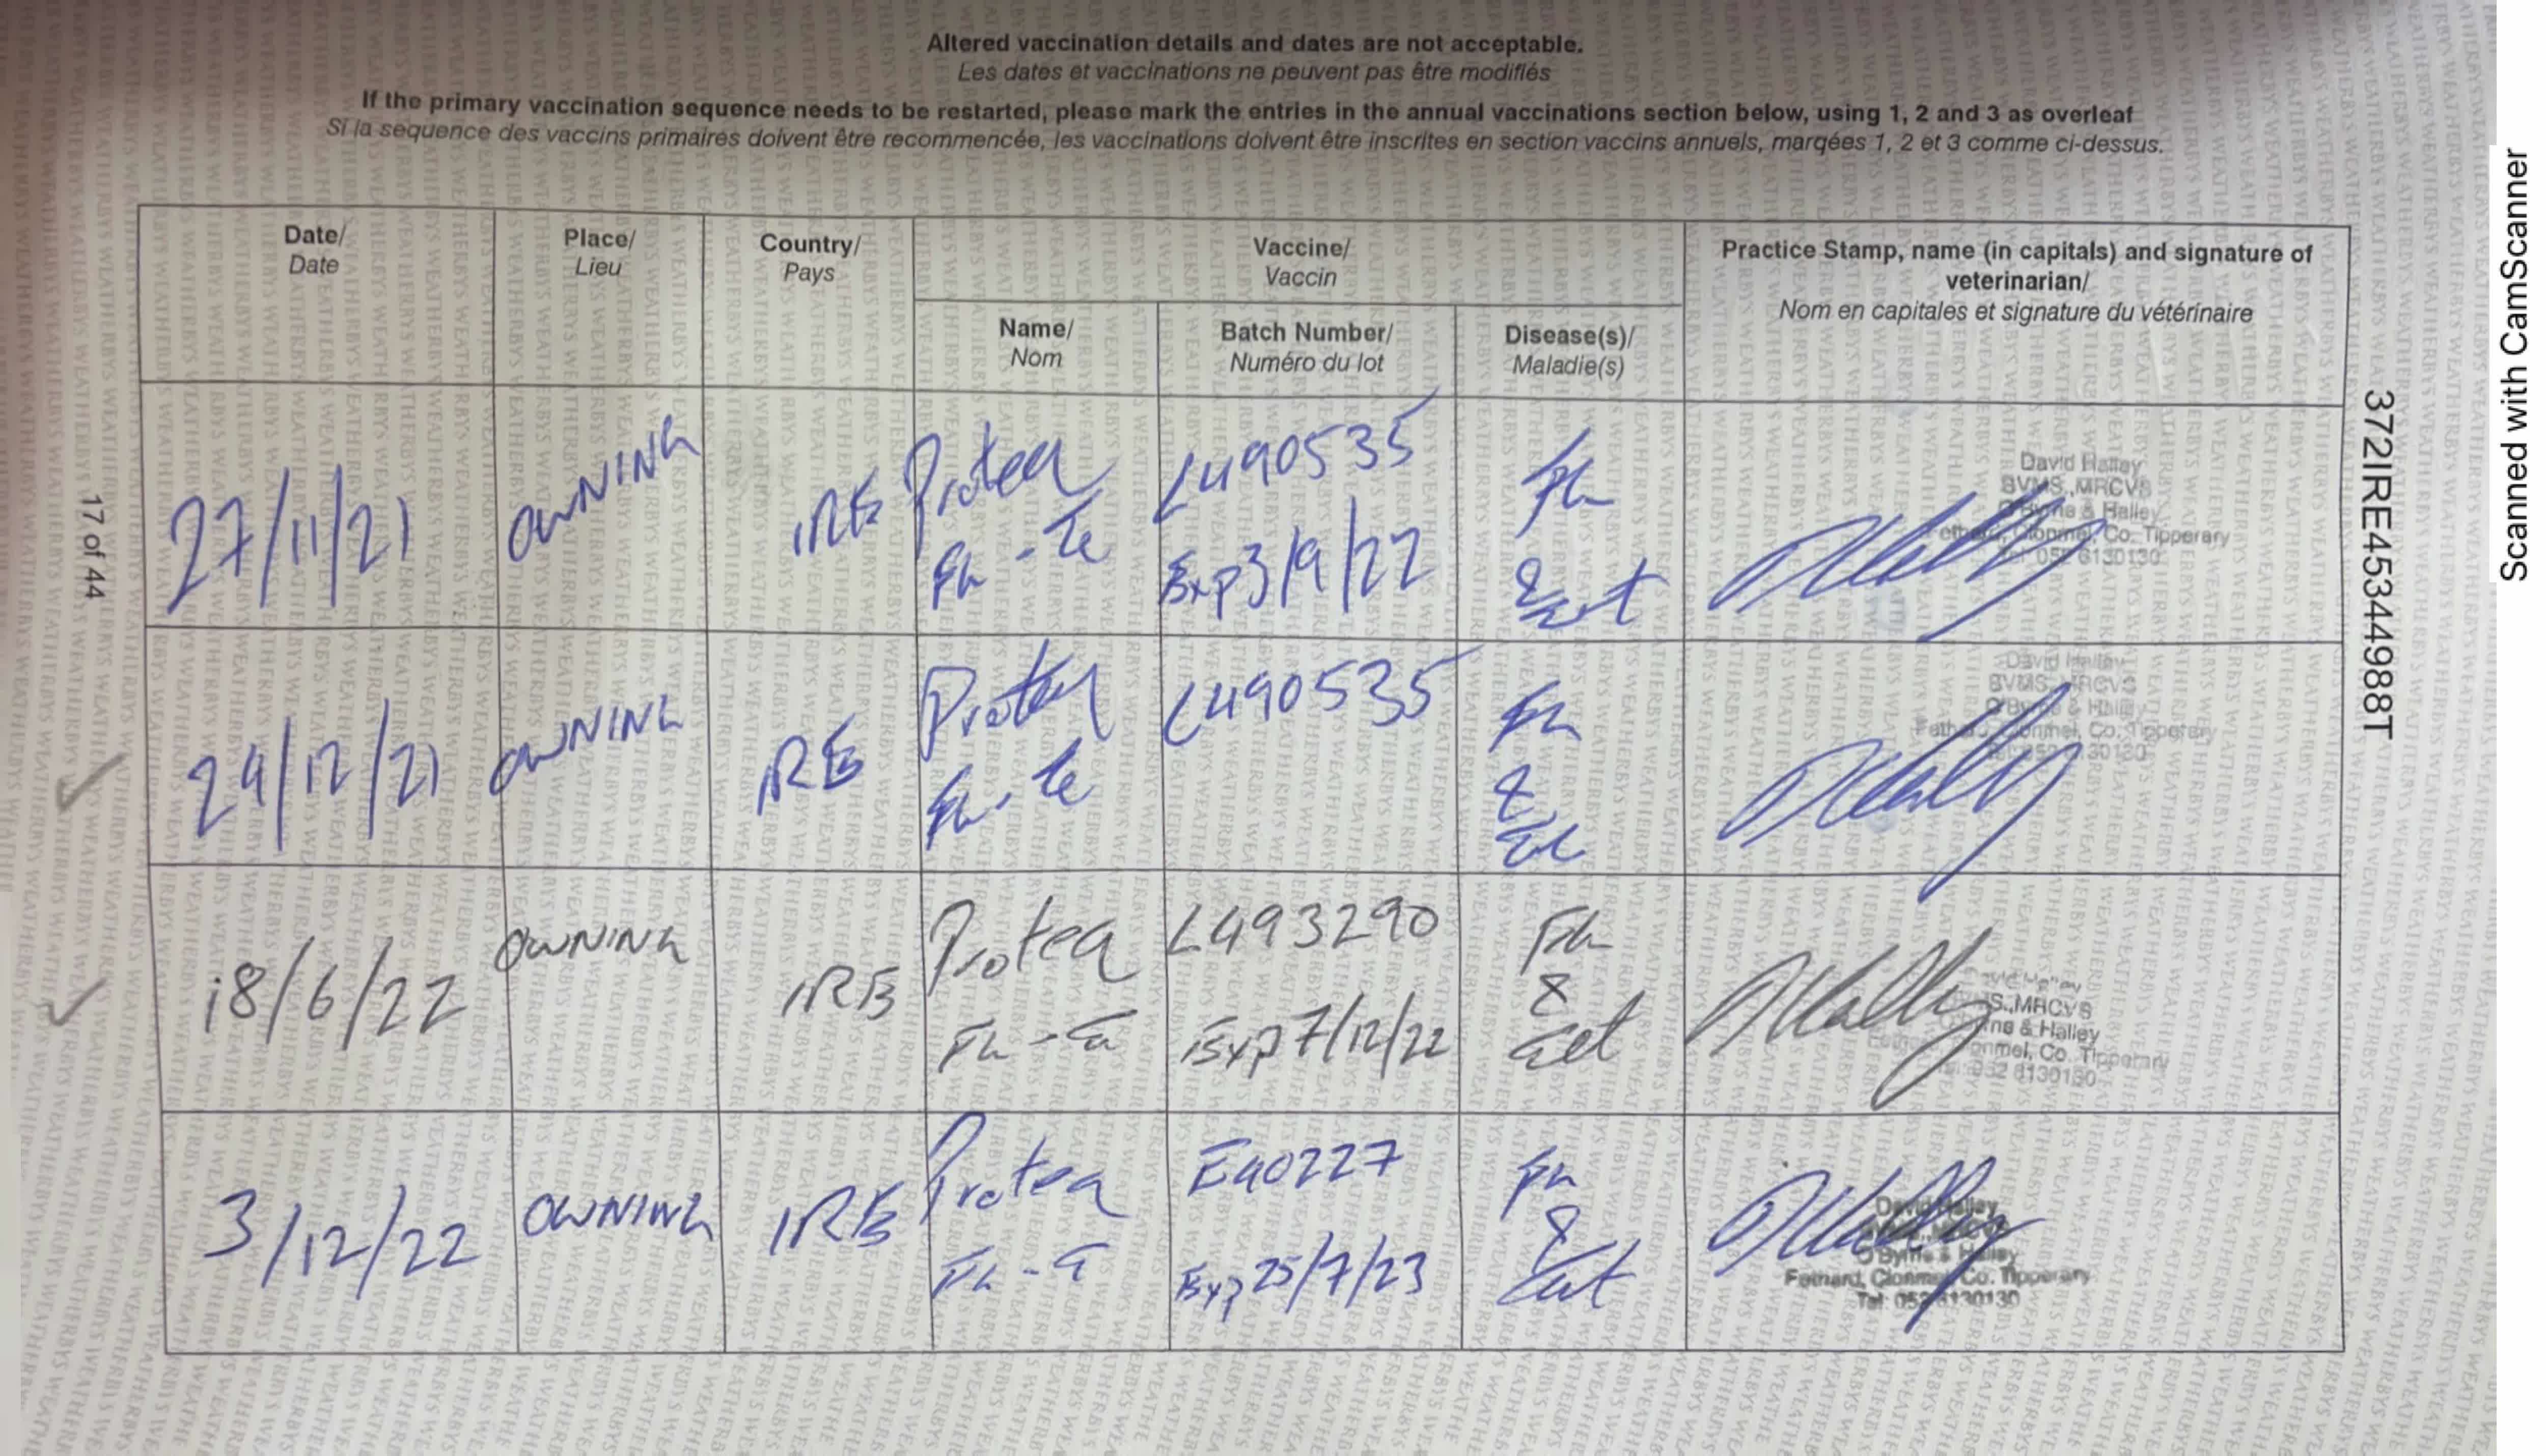 Altered vaccination details and dates are not acceptable.
Les dates et vaccinations ne peuvent pas être modifiés
If the primary vaccination sequence needs to be restarted, please mark the entries in the annual vaccinations section below, using 1, 2 and 3 as overleaf
Si la sequence des vaccins primaires doivent être recommencée, les vaccinations doivent être inscrites en section vaccins annuels, marqées 1, 2 et 3 comme ci-dessus.
Date/
Date
Place/
Lieu
Country/
Pays
Vaccine/
Vaccin
Name/
Nom
Batch Number/
Numéro du lot
Disease(s)/
Maladie(s)
Practice Stamp, name (in capitals) and signature of
veterinarian/
Nom en capitales et signature du vétérinaire
27/11/21
OWNING
IRE
Protea
Flu - Te
L490535
Exp 3/9/22
Flu
&
Tet
David Halley
BVMS.,MRCVS
O'Byrne & Halley
Fethard, Clonmel, Co. Tipperary
Tel: 052 6130130
29/12/21
OWNING
IRE
Protea
Flu - Te
L490535
Flu
&
Tet
David Halley
BVMS.,MRCVS
O'Byrne & Halley
Fethard, Clonmel, Co. Tipperary
18/6/22
OWNING
IRE
Protea
Flu - Te
L493290
Exp 7/12/22
Flu
&
Tet
David Halley
MRCVS
& Halley
Clonmel, Co. Tipperary
052 6130130
3/12/22
OWNING
IRE
Protea
Flu - T
E40227
Exp 25/7/23
Flu
&
Tet
David Halley
O'Byrne & Halley
Fethard, Clonmel, Co. Tipperary
Tel: 052 6130130
17 of 44
372IRE45344988T
Scanned with CamScanner